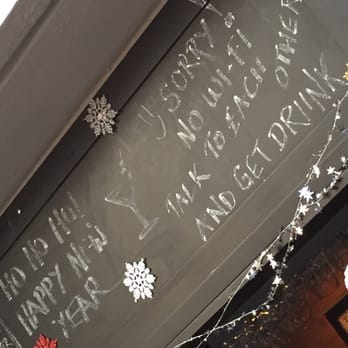 HO HO HO!
HAPPY NEW
YEAR
SORRY!
NO WI-FI
TALK TO EACH OTHER
AND GET DRINK